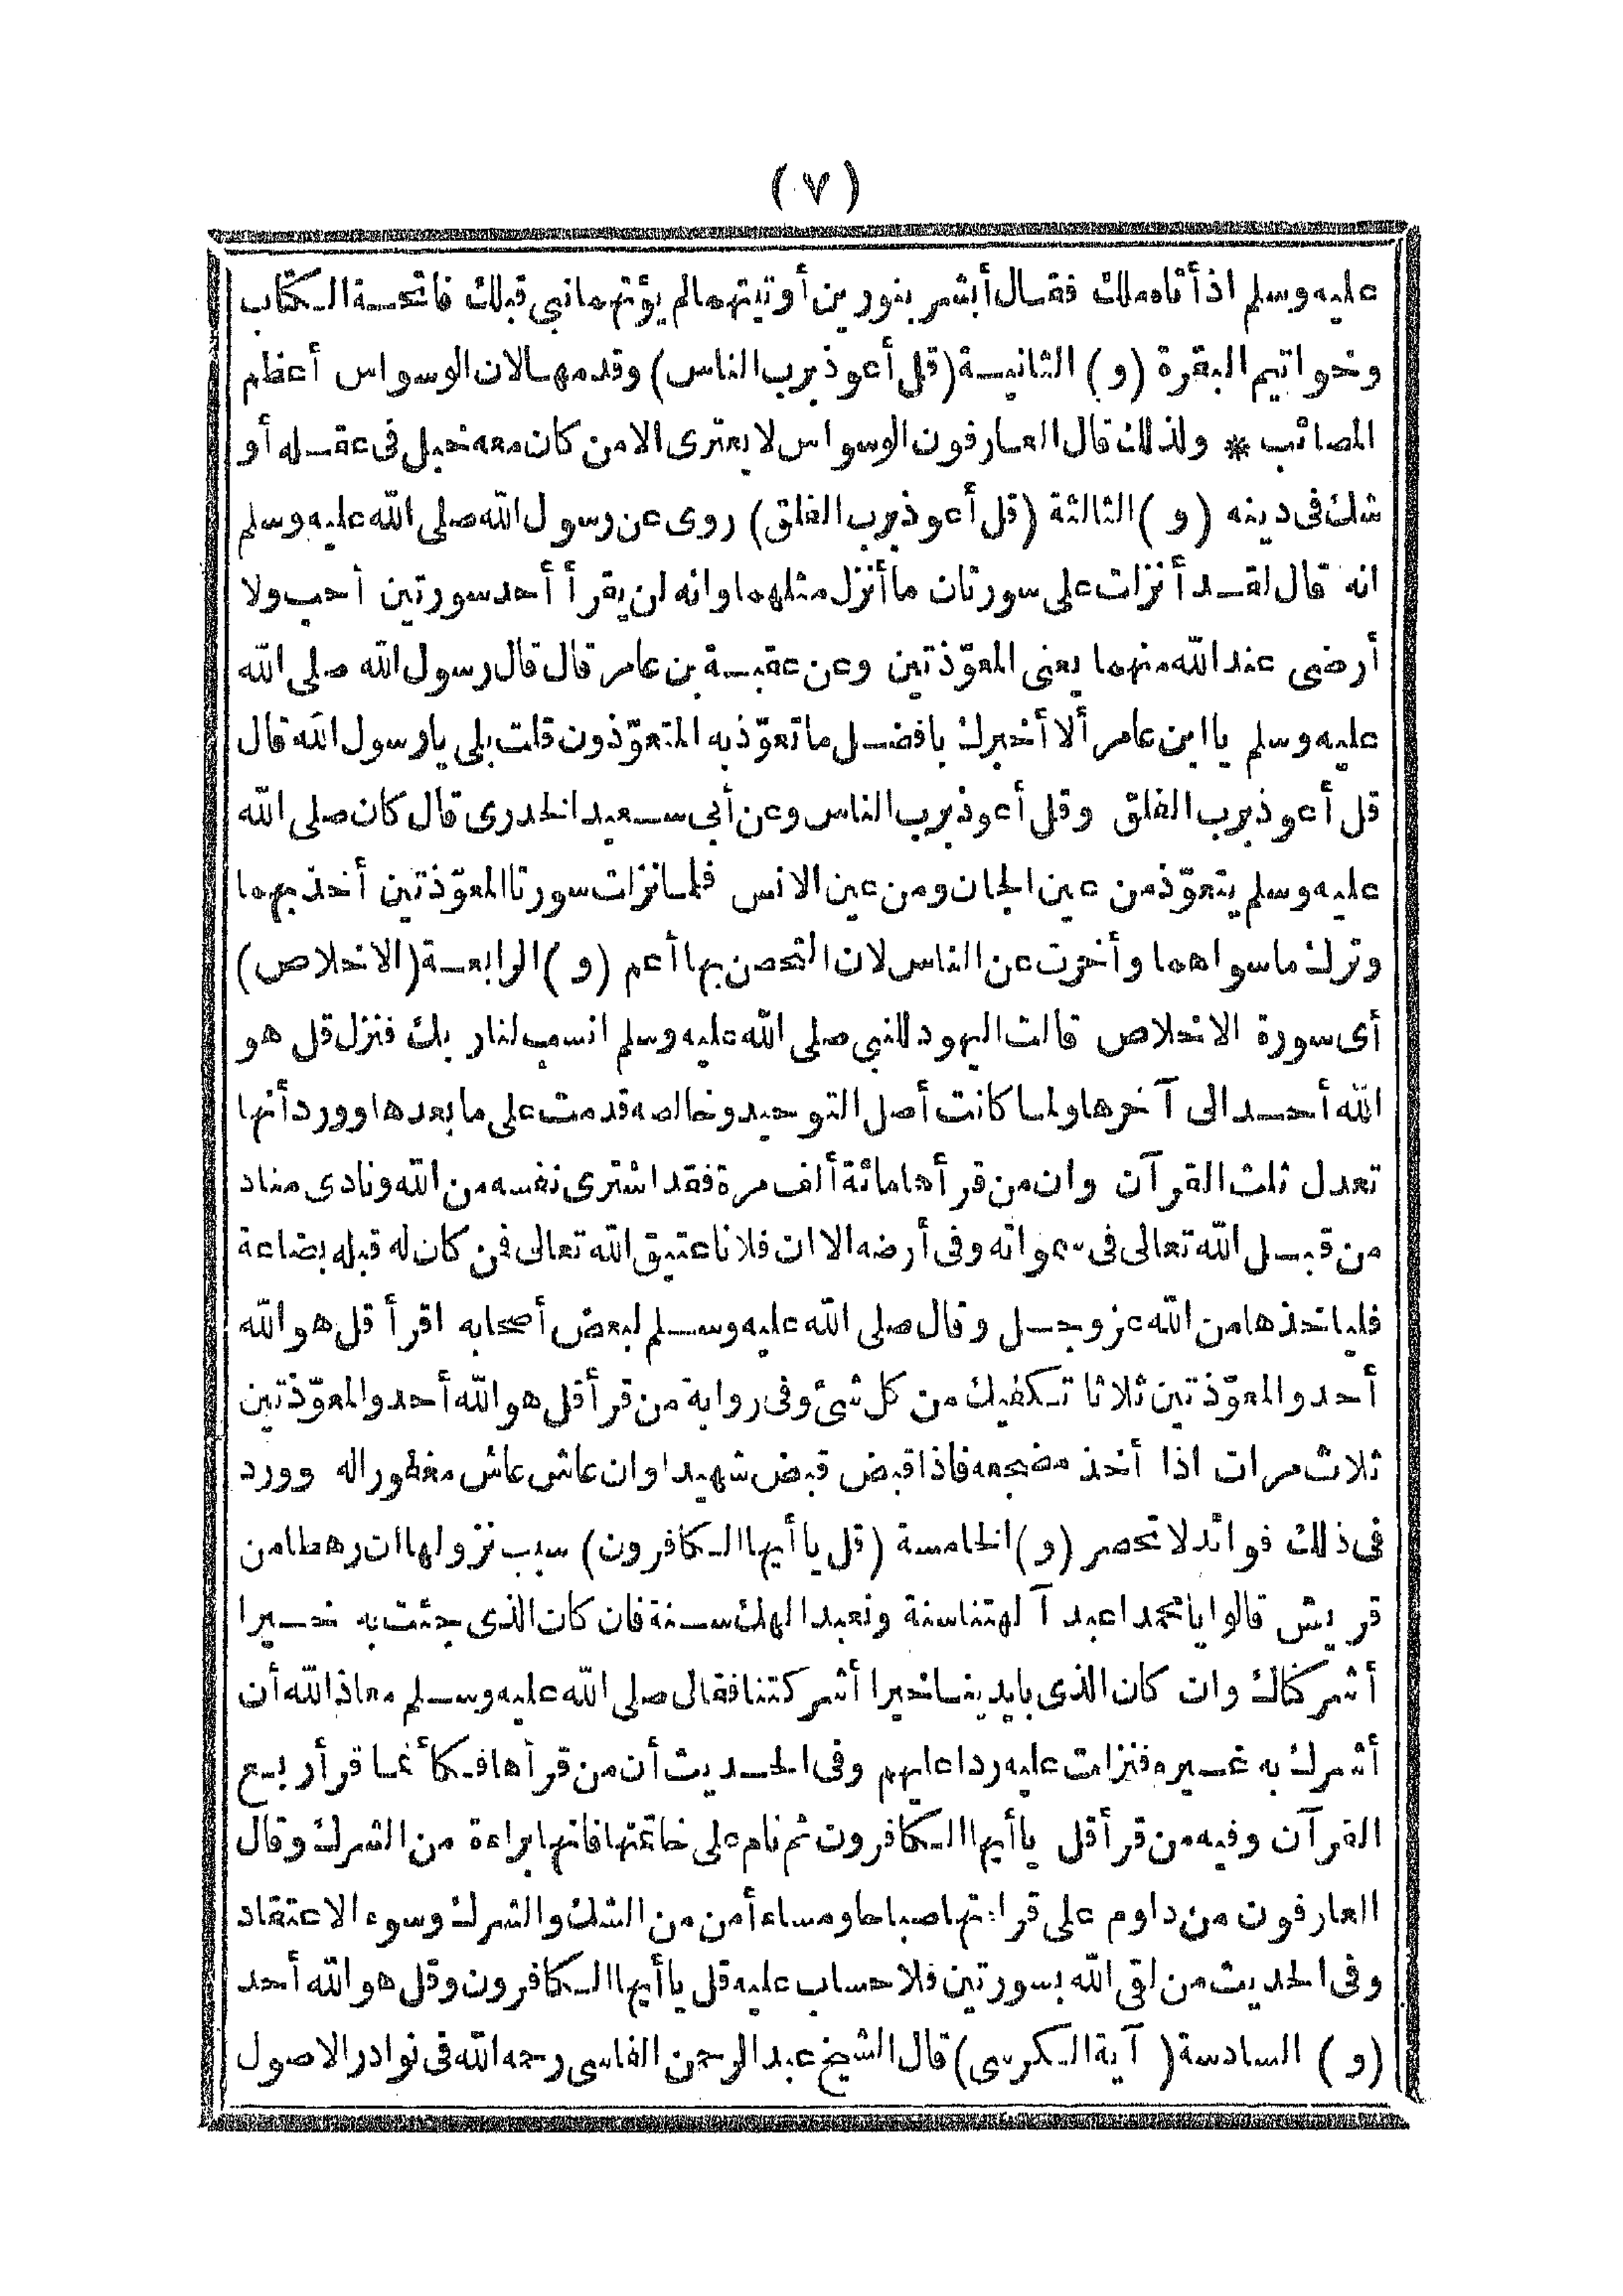 (٧)
عليه وسلم اذ أتاه ملك فقال أبشر بنورين أوتيتهما لم يؤتهما نبي قبلك فاتحة الكتاب
وخواتيم البقرة (و) الثانية (قل أعوذ برب الناس) وقدمها لان الوسواس أعظم
المصائب * ولذلك قال العارفون الوسواس لا يعترى الا من كان معه خبل فى عقله أو
شك فى دينه (و) الثالثة (قل أعوذ برب الفلق) روى عن رسول الله صلى الله عليه وسلم
انه قال لقد أنزلت على سورتان ما أنزل مثلهما وانه لن يقرأ أحد سورتين أحب ولا
أرضى عند الله منهما يعنى المعوّذتين وعن عقبة بن عامر قال قال رسول الله صلى الله
عليه وسلم يا ابن عامر ألا أخبرك بافضل ما تعوّذ به المتعوّذون قلت بلى يا رسول الله قال
قل أعوذ برب الفلق وقل أعوذ برب الناس وعن أبى سعيد الخدرى قال كان صلى الله
عليه وسلم يتعوّذ من عين الجان ومن عين الانس فلما نزلت سورتا المعوّذتين أخذ بهما
وترك ما سواهما وأخرت عن الناس لان التحصن بها أعم (و) الرابعة (الاخلاص)
أى سورة الاخلاص قالت اليهود للنبى صلى الله عليه وسلم انسب لنا ربك فنزل قل هو
الله أحد الى آخرها ولما كانت أصل التوحيد وخالصه قدمت على ما بعدها وورد أنها
تعدل ثلث القرآن وان من قرأها مائة ألف مرة فقد اشترى نفسه من الله ونادى مناد
من قبل الله تعالى فى سمواته وفى أرضه الا ان فلانا عتيق الله تعالى فمن كان له قبله بضاعة
فلياخذها من الله عز وجل وقال صلى الله عليه وسلم لبعض أصحابه اقرأ قل هو الله
أحد والمعوّذتين ثلاثا تكفيك من كل شئ وفى رواية من قرأ قل هو الله أحد والمعوّذتين
ثلاث مرات اذا أخذ مضجعه فاذا قبض قبض شهيدا وان عاش عاش مغفورا له وورد
فى ذلك فوائد لا تحصر (و) الخامسة (قل يا أيها الكافرون) سبب نزولها ان رهطا من
قريش قالوا يا محمد اعبد آلهتنا سنة ونعبد الهك سنة فان كان الذى جئت به خيرا
أشركناك وان كان الذى بايدينا خيرا أشركتنا فقال صلى الله عليه وسلم معاذ الله أن
أشرك به غيره فنزلت عليه ردا عليهم وفى الحديث أن من قرأها فكأنما قرأ ربع
القرآن وفيه من قرأ قل يا أيها الكافرون ثم نام على خاتمتها فانها براءة من الشرك وقال
العارفون من داوم على قراءتها صباحا ومساء أمن من الشك والشرك وسوء الاعتقاد
وفى الحديث من لقى الله بسورتين فلا حساب عليه قل يا أيها الكافرون وقل هو الله أحد
(و) السادسة (آية الكرسى) قال الشيخ عبد الرحمن الفاسى رحمه الله فى نوادر الاصول